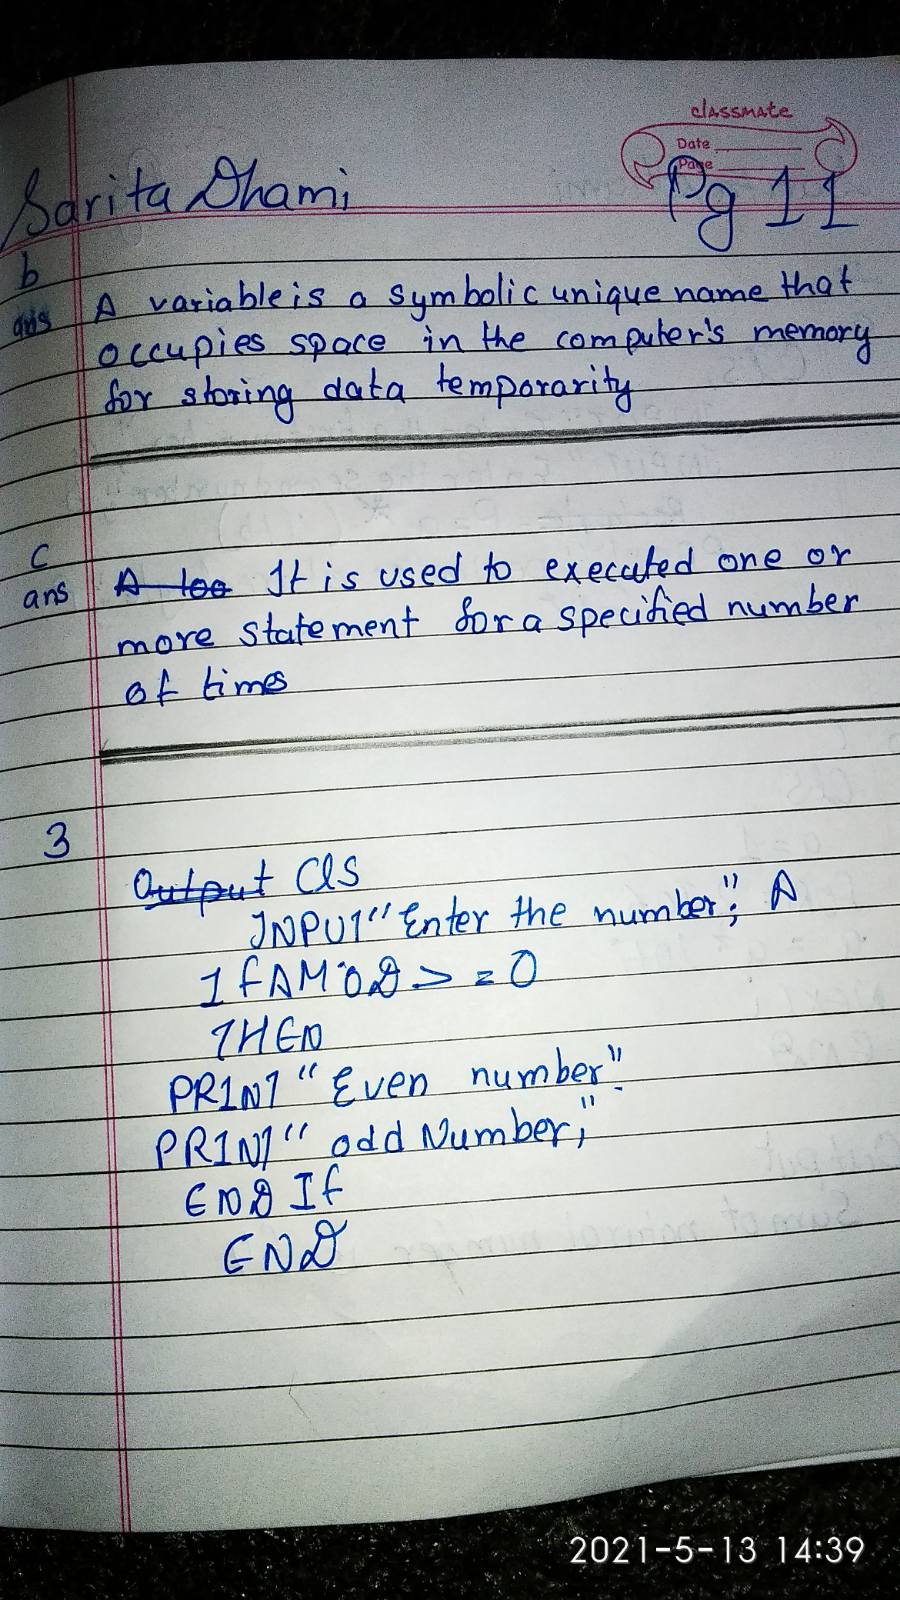 classmate
Date
Page
Sarita Dhami
Pg 11
b
ans A variable is a symbolic unique name that
occupies space in the computer's memory
for storing data temporarity
c
ans A loo It is used to executed one or
more statement for a specified number
of times
3
Output ClS
INPUT "Enter the number"; A
If A MOD > = 0
THEN
PRINT "Even number"
PRINT "odd Number;"
END If
END
2021-5-13 14:39